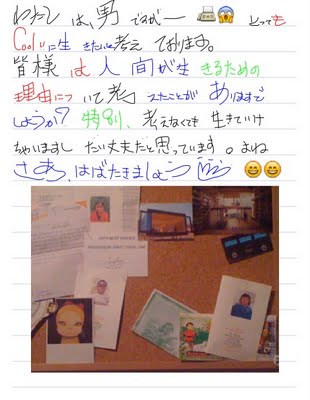 わたしは、男ですがー 📠😱 とっても
Coolに生きたいと考えております。
皆様は人間が生きるための
理由について考えたことがありますで
しょうか？特別、考えなくても生きていけ
ちゃいますしだい丈夫だと思っています。よね
さあ、はばたきましょう 😄😄